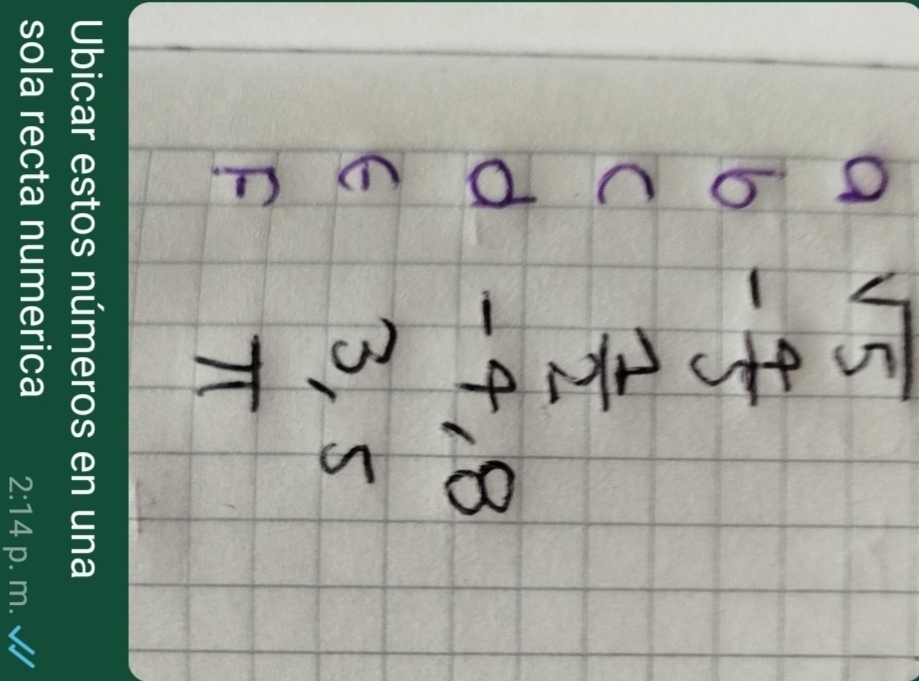 a √5
b -4/5
c 7/2
d -4,8
E 3,5
F π
Ubicar estos números en una
sola recta numerica 2:14 p. m.